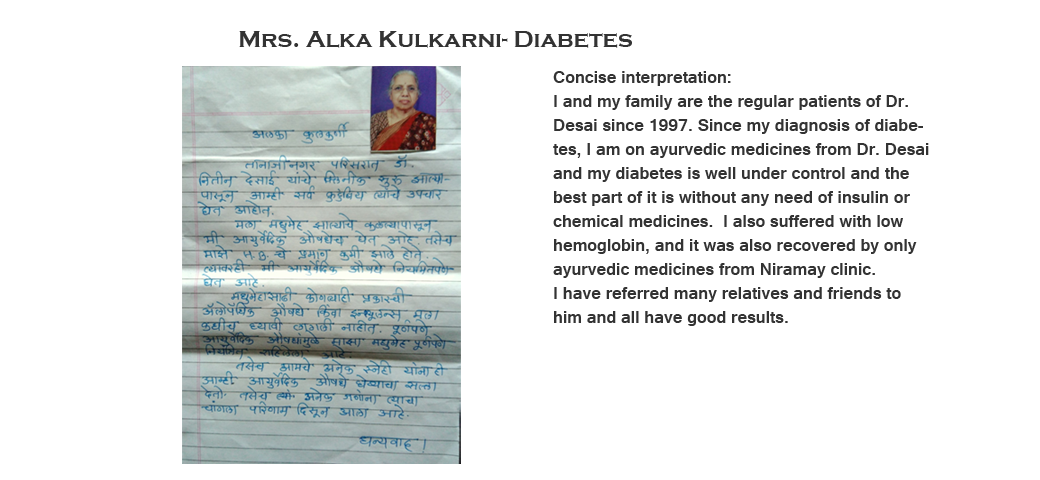 Mrs. Alka Kulkarni- Diabetes
अलका कुलकर्णी
तानाजीनगर परिसरात डॉ.
नितीन देसाई यांचे क्लिनीक सुरु झाल्या-
पासून आम्ही सर्व कुटुंबिय त्यांचे उपचार
घेत आहोत.
मला मधुमेह झाल्याचे कळल्यापासून
मी आयुर्वेदिक औषधेच घेत आहे. तसेच
माझे H.B. चे प्रमाण कमी झाले होते.
त्यावरही मी आयुर्वेदिक औषधे नियमितपणे
घेत आहे.
मधुमेहासाठी कोणत्याही प्रकारची
ॲलोपॅथिक औषधे किंवा इन्शुलिन्स मला
कधीच घ्यावी लागली नाहीत. पूर्णपणे
आयुर्वेदिक औषधांमुळे माझा मधुमेह पूर्णपणे
नियंत्रित राहिलेला आहे.
तसेच आमचे अनेक स्नेही यांनाही
आम्ही आयुर्वेदिक औषधे घेण्याचा सल्ला
देतो. तसेच अनेक त्याचा
चांगला परिणाम दिसून आला आहे.
धन्यवाद।
Concise interpretation:
I and my family are the regular patients of Dr.
Desai since 1997. Since my diagnosis of diabe-
tes, I am on ayurvedic medicines from Dr. Desai
and my diabetes is well under control and the
best part of it is without any need of insulin or
chemical medicines. I also suffered with low
hemoglobin, and it was also recovered by only
ayurvedic medicines from Niramay clinic.
I have referred many relatives and friends to
him and all have good results.